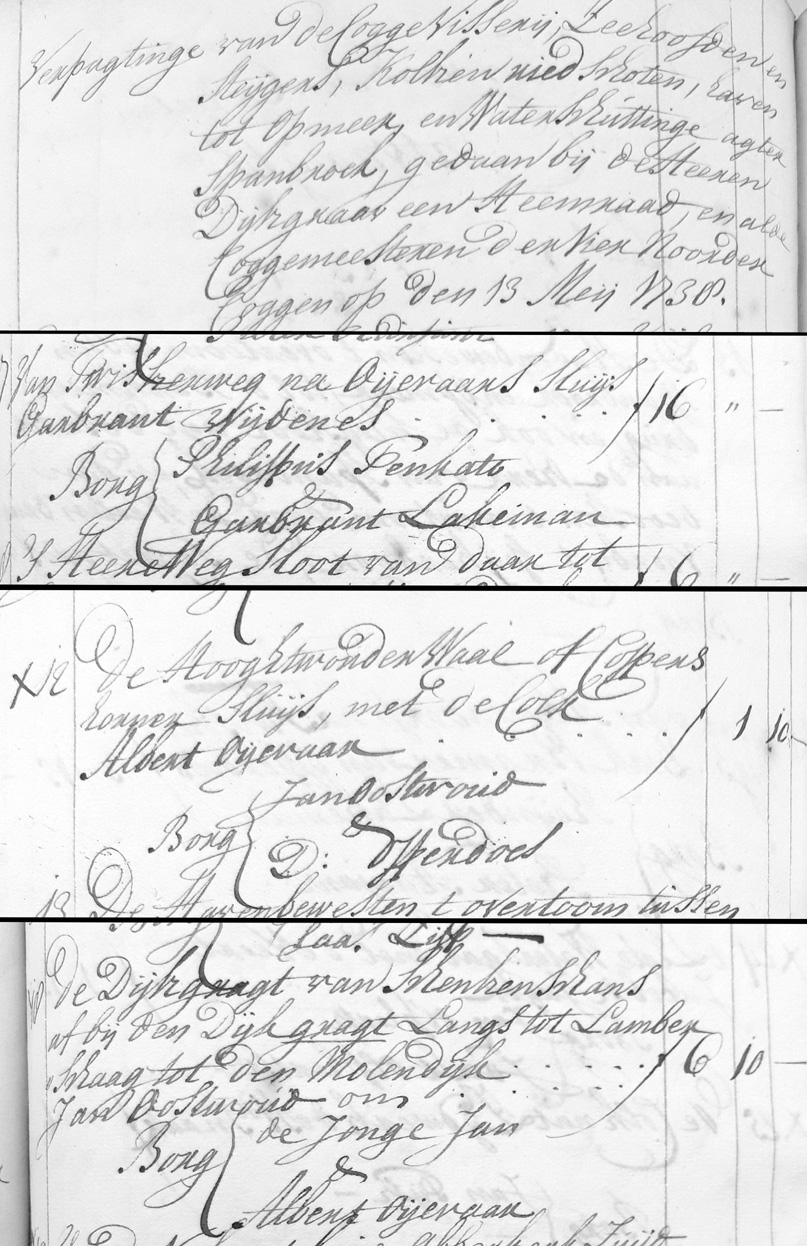 Verpagtinge van de Coggevisserij, Zeehoofden en
steijgers, Kolkien riedschoten, haven
tot Opmeer, en Waterschuttinge agter
Spanbroek, gedaan bij de Heeren
Dijkgraav een Heemraad, en alde
Coggemeesteren der Vier Noorder
Coggen op den 13 Meij 1738.
7 Van Twiskerweg na Oijevaars sluijs
Garbrant Wijdenes . . . . ƒ 16 " —
Borg Philippuis Penkate
&
Garbrant Lakeman
8 's HeereWeg sloot van daar tot ƒ 6 " —
X 12 De Hooghtwouder Waal of Coppens
korner sluijs, met de Colk
Albert Oijevaar . . . . ƒ 1 10 -
Borg Jan Oostwoud
&
D: Appendoes
13 De Haven bewesten t overtoom tussen
Claas
de Dijkgragt van Schenkenschans
af bij den Dijk gragt Langs tot Lamber
schaag tot den Molendijk . . . . ƒ 6 10 —
Jan Oostwoud om
Borg de Jonge Jan
&
Albert Oijevaar